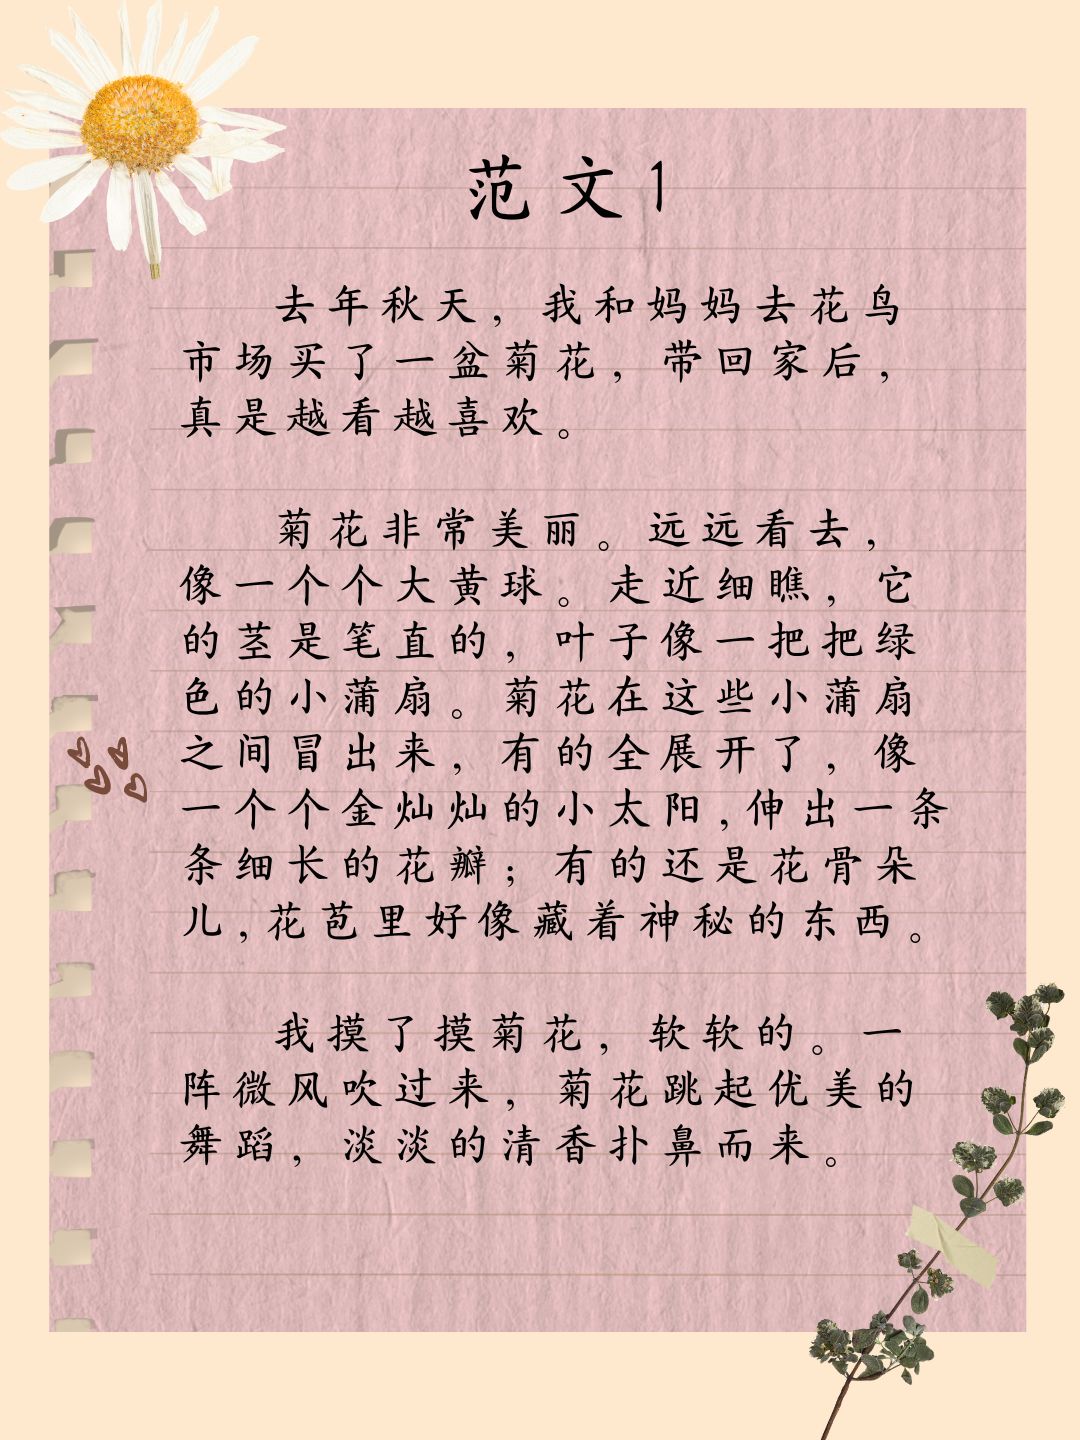 范文1
去年秋天，我和妈妈去花鸟
市场买了一盆菊花，带回家后，
真是越看越喜欢。
菊花非常美丽。远远看去，
像一个个大黄球。走近细瞧，它
的茎是笔直的，叶子像一把把绿
色的小蒲扇。菊花在这些小蒲扇
之间冒出来，有的全展开了，像
一个个金灿灿的小太阳,伸出一条
条细长的花瓣；有的还是花骨朵
儿,花苞里好像藏着神秘的东西。
我摸了摸菊花，软软的。一
阵微风吹过来，菊花跳起优美的
舞蹈，淡淡的清香扑鼻而来。